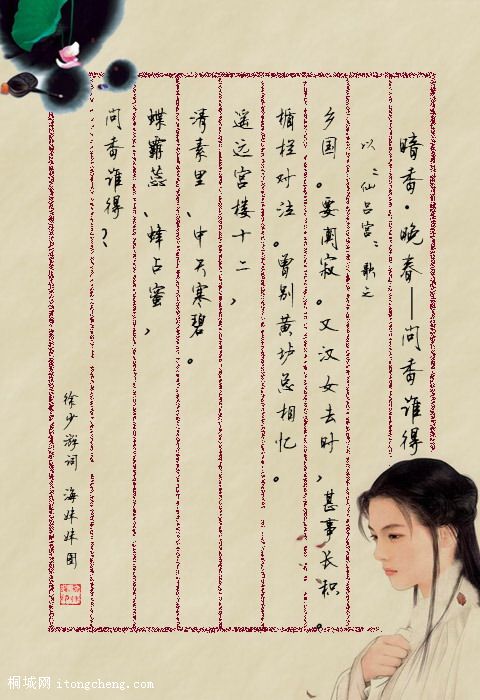 暗香·晚春——问香谁得
以“仙吕宫”歌之
乡国。要阑寂。又汉女去时，甚事长枳。
楯柱对泣。曾别黄垆总相忆。
遥远宫楼十二，
清素里、中天寒碧。
蝶霸蕊、蜂占蜜，
问香谁得？
徐少游词 海妹妹图
桐城网 itongcheng.com